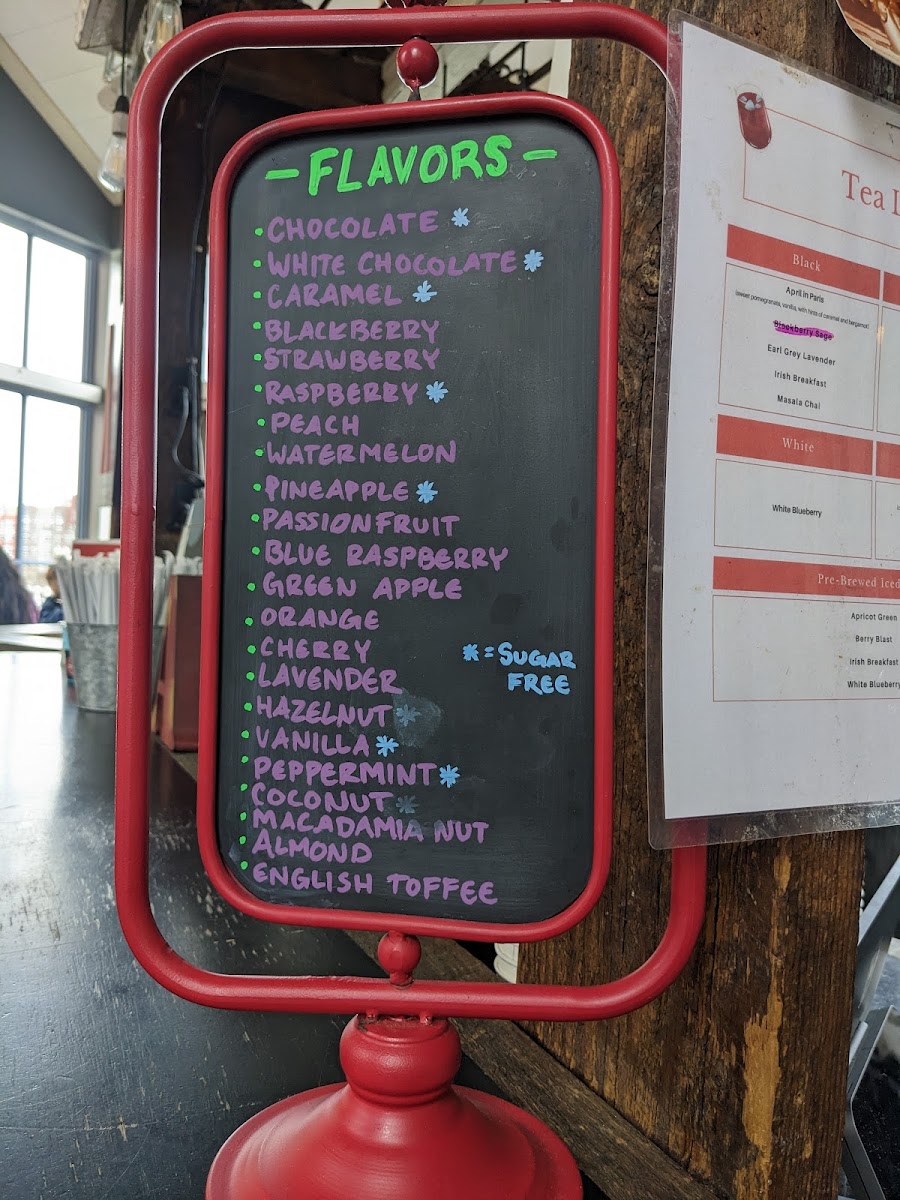 - FLAVORS -
• CHOCOLATE *
• WHITE CHOCOLATE *
• CARAMEL *
• BLACKBERRY
• STRAWBERRY
• RASPBERRY *
• PEACH
• WATERMELON
• PINEAPPLE *
• PASSIONFRUIT
• BLUE RASPBERRY
• GREEN APPLE
• ORANGE
• CHERRY
• LAVENDER
• HAZELNUT *
• VANILLA *
• PEPPERMINT *
• COCONUT *
• MACADAMIA NUT
• ALMOND
• ENGLISH TOFFEE
* = SUGAR
FREE
Tea
Black
April in Paris
(sweet pomegranate, vanilla, with hints of caramel and bergamot)
Blackberry Sage
Earl Grey Lavender
Irish Breakfast
Masala Chai
White
White Blueberry
Pre-Brewed Iced
Apricot Green
Berry Blast
Irish Breakfast
White Blueberry